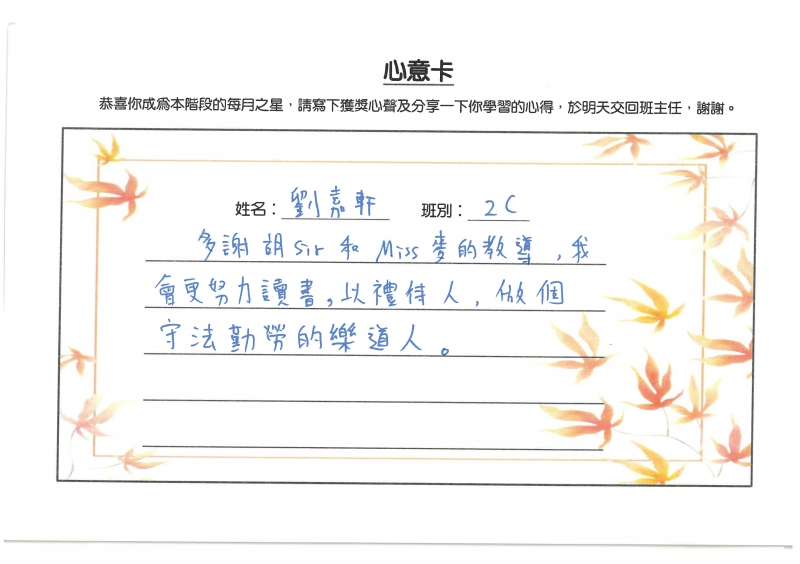 心意卡
恭喜你成為本階段的每月之星，請寫下獲獎心聲及分享一下你學習的心得，於明天交回班主任，謝謝。
姓名：劉嘉軒 班別：2C
多謝胡Sir和Miss麥的教導，我
會更努力讀書，以禮待人，做個
守法勤勞的樂道人。